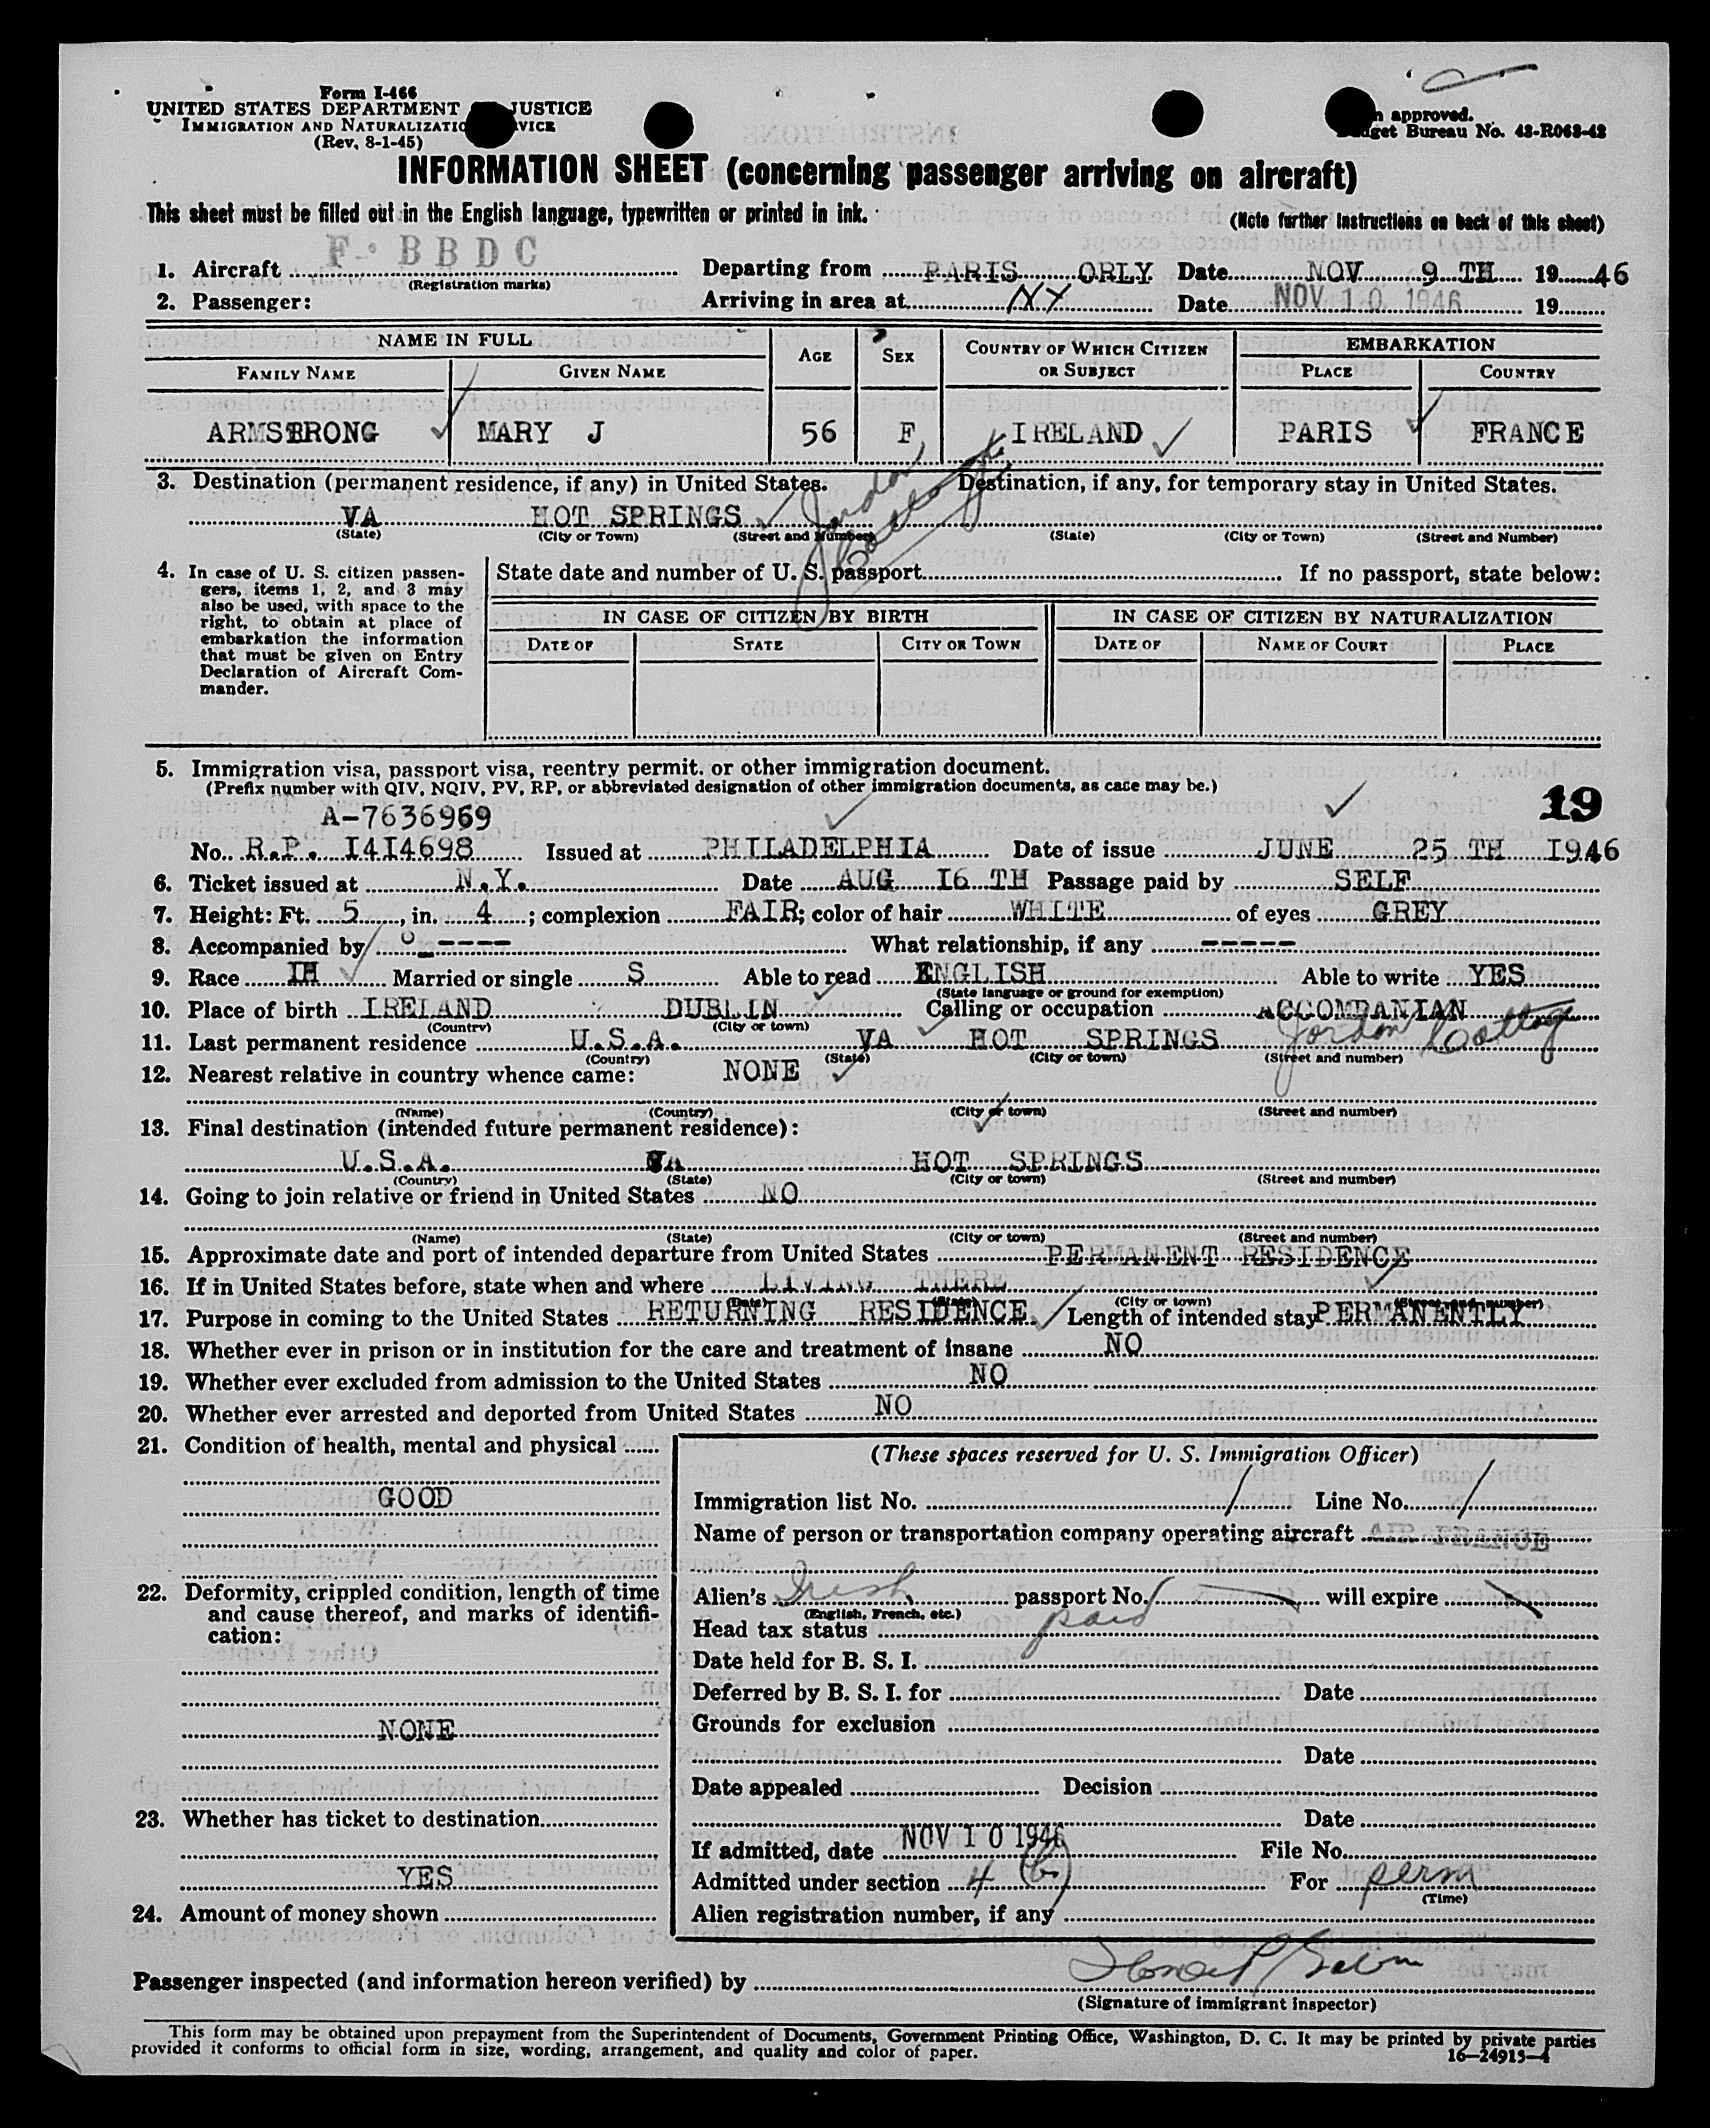 Form I-466
UNITED STATES DEPARTMENT JUSTICE
IMMIGRATION AND NATURALIZATIO VICE
(Rev. 8-1-45)
n approved.
get Bureau No. 43-R063-43
INFORMATION SHEET (concerning passenger arriving on aircraft)
This sheet must be filled out in the English language, typewritten or printed in ink.
(Note further instructions on back of this sheet)
1. Aircraft F-BBDC Departing from PARIS ORLY Date NOV 9 TH 1946
(Registration marks)
2. Passenger: Arriving in area at NY Date NOV 10 1946 19
NAME IN FULL AGE SEX COUNTRY OF WHICH CITIZEN OR SUBJECT EMBARKATION
FAMILY NAME GIVEN NAME PLACE COUNTRY
ARMSTRONG MARY J 56 F IRELAND PARIS FRANCE
3. Destination (permanent residence, if any) in United States. Destination, if any, for temporary stay in United States.
VA HOT SPRINGS Jordan Cottage
(State) (City or Town) (Street and Number) (State) (City or Town) (Street and Number)
4. In case of U. S. citizen passengers, items 1, 2, and 3 may also be used, with space to the right, to obtain at place of embarkation the information that must be given on Entry Declaration of Aircraft Commander.
State date and number of U. S. passport If no passport, state below:
IN CASE OF CITIZEN BY BIRTH IN CASE OF CITIZEN BY NATURALIZATION
DATE OF STATE CITY OR TOWN DATE OF NAME OF COURT PLACE
5. Immigration visa, passport visa, reentry permit, or other immigration document.
(Prefix number with QIV, NQIV, PV, RP, or abbreviated designation of other immigration documents, as case may be.)
19
A-7636969
No. R.P. I4I4698 Issued at PHILADELPHIA Date of issue JUNE 25 TH I946
6. Ticket issued at N.Y. Date AUG I6 TH Passage paid by SELF
7. Height: Ft. 5, in. 4; complexion FAIR; color of hair WHITE of eyes GREY
8. Accompanied by ---- What relationship, if any -----
9. Race IH Married or single S Able to read ENGLISH Able to write YES
(State language or ground for exemption)
10. Place of birth IRELAND DUBLIN Calling or occupation ACCOMPANIAN
(Country) (City or town)
11. Last permanent residence U.S.A. VA HOT SPRINGS Jordan Cottage
(Country) (State) (City or town) (Street and number)
12. Nearest relative in country whence came: NONE
(Name) (Country) (City or town) (Street and number)
13. Final destination (intended future permanent residence):
U.S.A. VA HOT SPRINGS
(Country) (State) (City or town) (Street and number)
14. Going to join relative or friend in United States NO
(Name) (State) (City or town) (Street and number)
15. Approximate date and port of intended departure from United States PERMANENT RESIDENCE
16. If in United States before, state when and where LIVING THERE
(Date) (State) (City or town) (Street and number)
17. Purpose in coming to the United States RETURNING RESIDENCE Length of intended stay PERMANENTLY
18. Whether ever in prison or in institution for the care and treatment of insane NO
19. Whether ever excluded from admission to the United States NO
20. Whether ever arrested and deported from United States NO
21. Condition of health, mental and physical
GOOD
22. Deformity, crippled condition, length of time and cause thereof, and marks of identification:
NONE
23. Whether has ticket to destination
YES
24. Amount of money shown
(These spaces reserved for U. S. Immigration Officer)
Immigration list No. / Line No. /
Name of person or transportation company operating aircraft AIR FRANCE
Alien's Irish passport No. will expire
(English, French, etc.)
Head tax status paid
Date held for B. S. I.
Deferred by B. S. I. for Date
Grounds for exclusion
Date
Date appealed Decision
Date
If admitted, date NOV 10 1946 File No.
Admitted under section 4 (b) For perm
(Time)
Alien registration number, if any
Passenger inspected (and information hereon verified) by
(Signature of immigrant inspector)
This form may be obtained upon prepayment from the Superintendent of Documents, Government Printing Office, Washington, D. C. It may be printed by private parties
provided it conforms to official form in size, wording, arrangement, and quality and color of paper.
16—24915-4